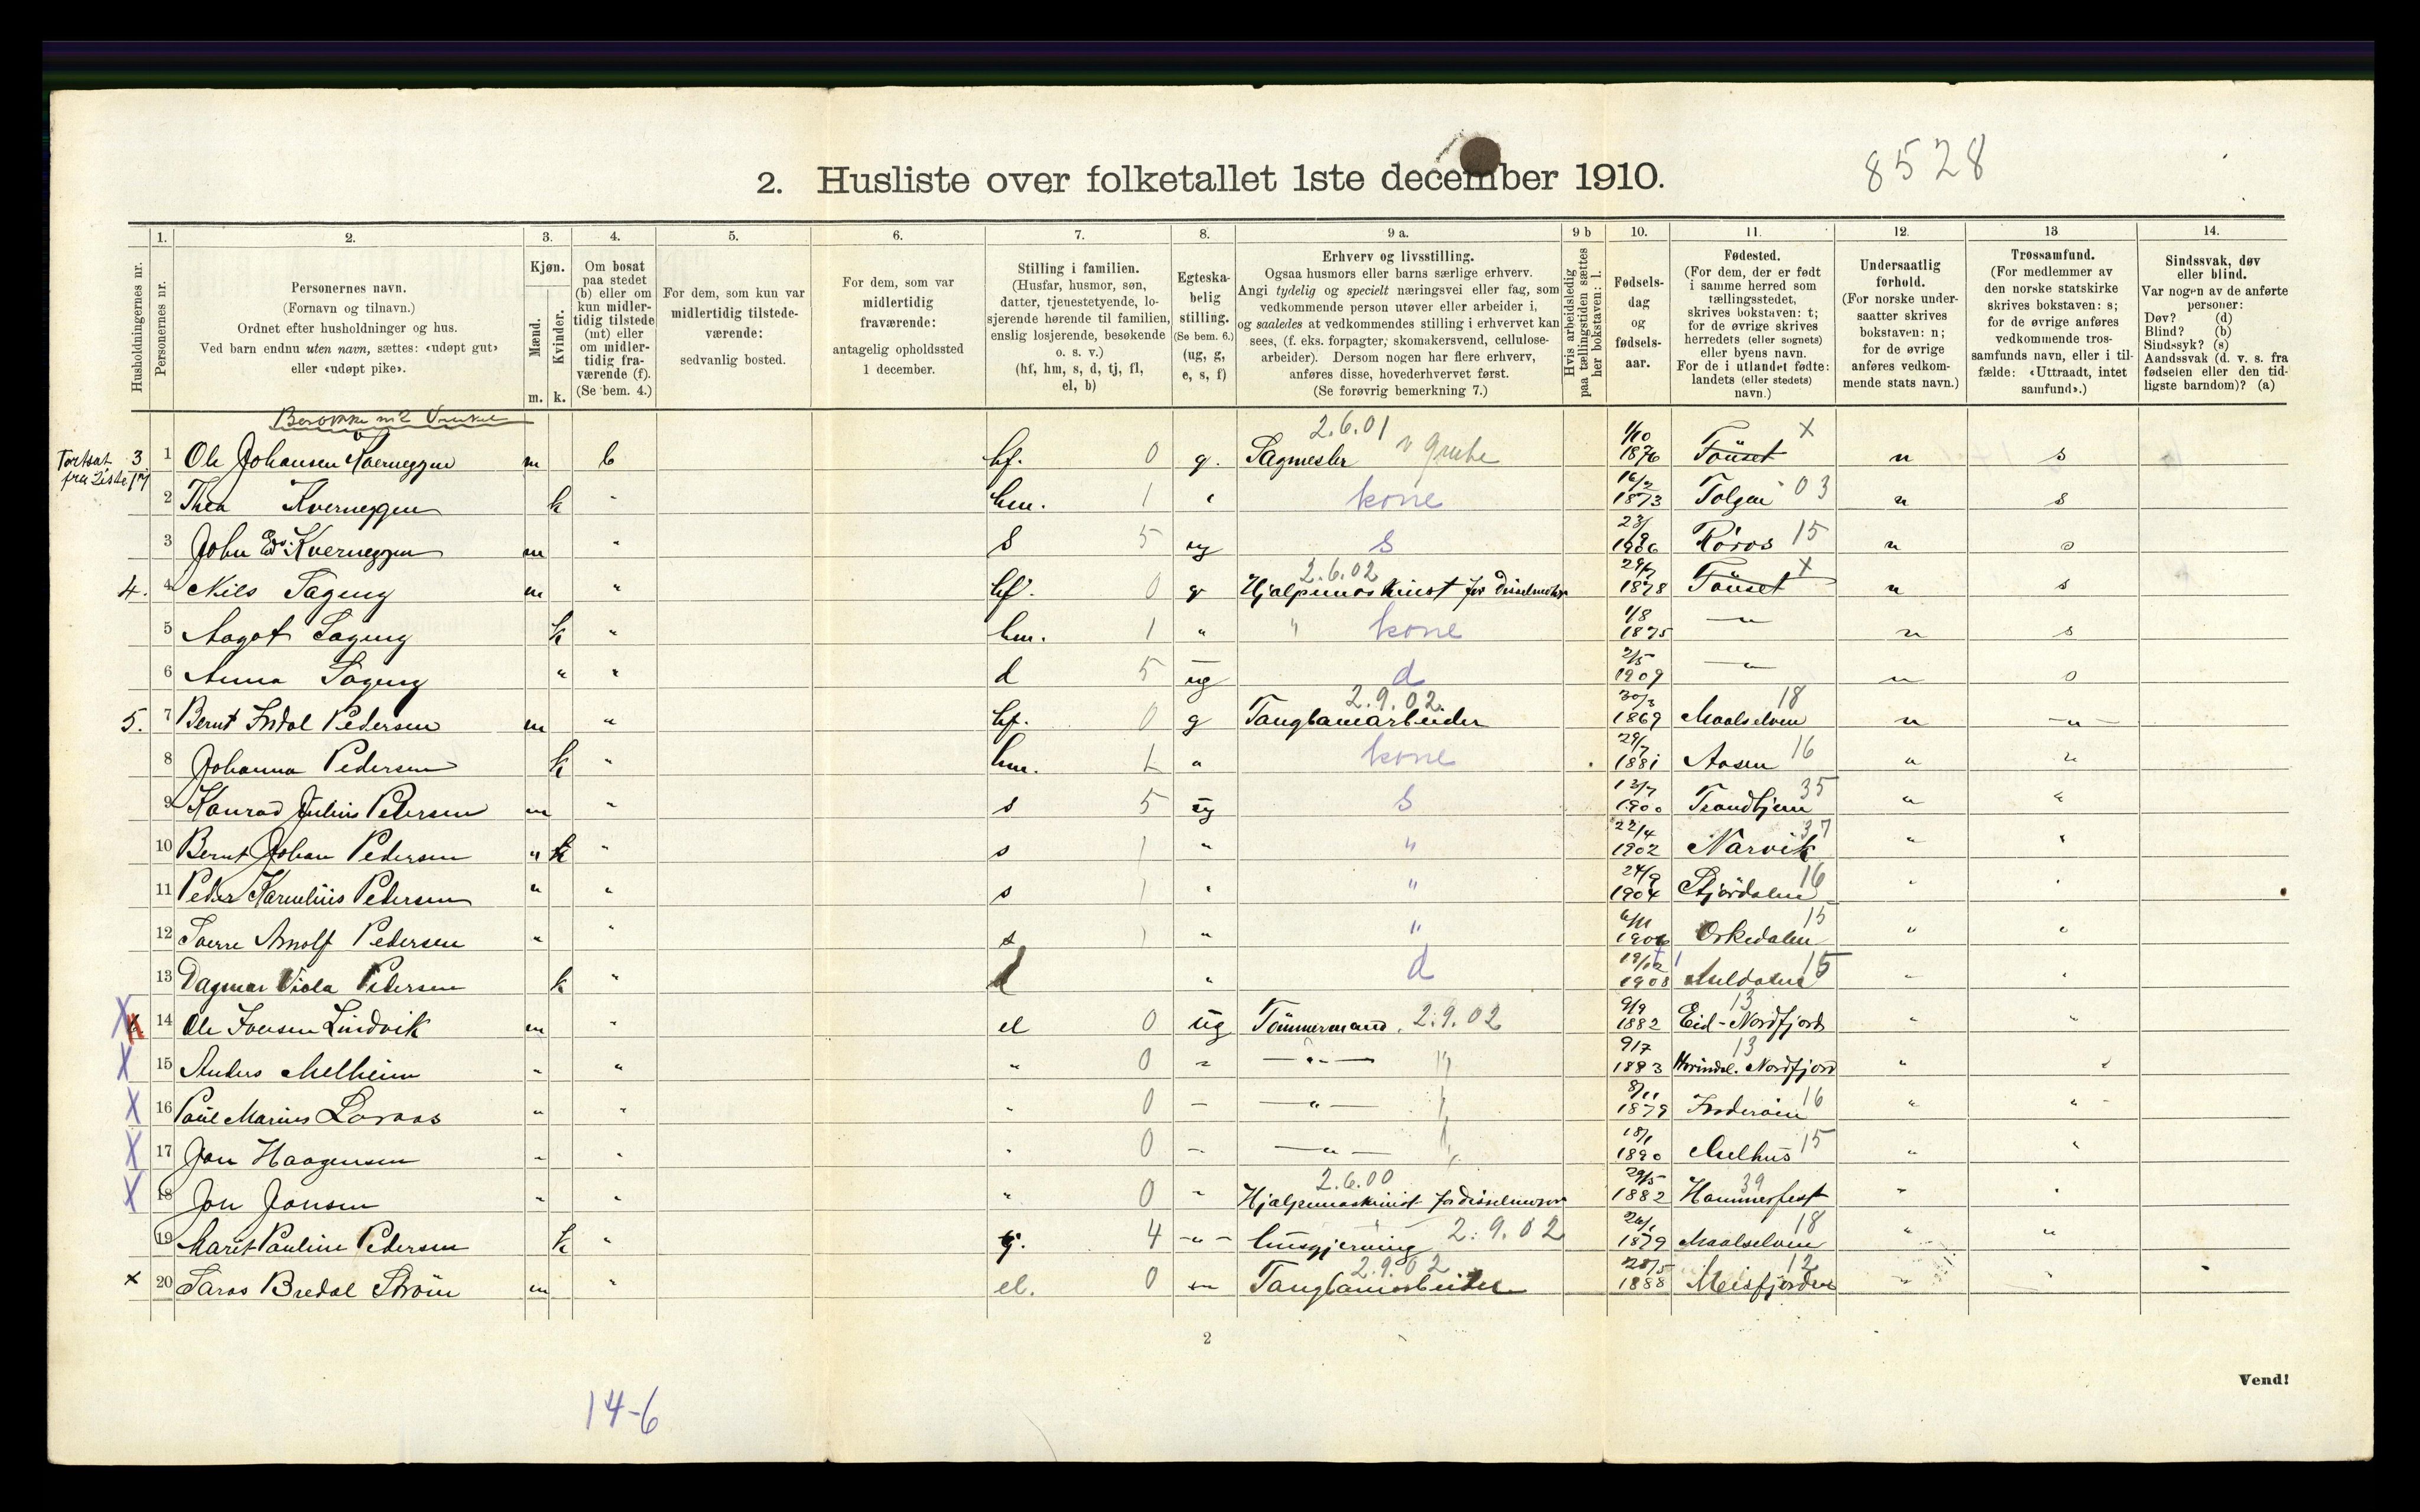 8528
2. Husliste over folketallet 1ste december 1910.
1. 2. 3. 4. 5. 6. 7. 8. 9 a. 9 b 10. 11. 12. 13 14.
Husholdningernes nr.
Personernes nr.
Personernes navn.
(Fornavn og tilnavn.)
Ordnet efter husholdninger og hus.
Ved barn endnu uten navn, sættes: «udøpt gut»
eller «udøpt pike».
Kjøn.
Mænd.
Kvinder.
m. k.
Om bosat
paa stedet
(b) eller om
kun midler-
tidig tilstede
(mt) eller
om midler-
tidig fra-
værende (f).
(Se bem. 4.)
For dem, som kun var
midlertidig tilstede-
værende:
sedvanlig bosted.
For dem, som var
midlertidig
fraværende:
antagelig opholdssted
1 december.
Stilling i familien.
(Husfar, husmor, søn,
datter, tjenestetyende, lo-
sjerende hørende til familien,
enslig losjerende, besøkende
o. s. v.)
(hf, hm, s, d, tj, fl,
el, b)
Egteska-
belig
stilling.
(Se bem. 6.)
(ug, g,
e, s, f)
Erhverv og livsstilling.
Ogsaa husmors eller barns særlige erhverv.
Angi tydelig og specielt næringsvei eller fag, som
vedkommende person utøver eller arbeider i,
og saaledes at vedkommendes stilling i erhvervet kan
sees, (f. eks. forpagter, skomakersvend, cellulose-
arbeider). Dersom nogen har flere erhverv,
anføres disse, hovederhvervet først.
(Se forøvrig bemerkning 7.)
Hvis arbeidsledig
paa tællingstiden sættes
her bokstaven: l.
Fødsels-
dag
og
fødsels-
aar.
Fødested.
(For dem, der er født
i samme herred som
tællingsstedet,
skrives bokstaven: t;
for de øvrige skrives
herredets (eller sognets)
eller byens navn.
For de i utlandet fødte:
landets (eller stedets)
navn.)
Undersaatlig
forhold.
(For norske under-
saatter skrives
bokstaven: n;
for de øvrige
anføres vedkom-
mende stats navn.)
Trossamfund.
(For medlemmer av
den norske statskirke
skrives bokstaven: s;
for de øvrige anføres
vedkommende tros-
samfunds navn, eller i til-
fælde: «Uttraadt, intet
samfund».)
Sindssvak, døv
eller blind.
Var nogen av de anførte
personer:
Døv? (d)
Blind? (b)
Sindssyk? (s)
Aandssvak (d. v. s. fra
fødselen eller den tid-
ligste barndom)? (a)
2.6.01
Fortsat fra Liste 17 3 1 Ole Johansen Kverneggen m b hf. 0 g. Sagmester v grube 1/10 1876 Tönset X n s
2 Thea Kverneggen k " hm. 1 " kone 16/2 1873 Tolgen 03 n s
3 John Edv. Kverneggen m " s 5 ug s 1906 Röros 15 n s
2.6.02
4. 4 Nils Tøgeng m " hf. 0 g Hjælpemaskinist 1878 Tönset X n s
5 Aagot k " hm. 1 " " kone 1/8 1875 " n s
6 Anna " " d 5 ug d 2/5 1909 " n s
2.9.02
5. 7 Bernt Indal Pedersen m " hf. 0 g Taugbanearbeider 30/3 1869 Maalselven 18 n "
8 Johanna Pedersen k " hm. 1 " kone 29/7 1881 Aasen 16 " "
9 Konrad Julius Pedersen m " s 5 ug s 13/7 1900 Trondhjem 35 " "
10 Bernt Johan Pedersen " k " s 1 " " 22/4 1902 Narvik 37 " "
11 Peder Kornelius Pedersen " " s 1 " " 24/9 1904 Stjördalen 16 " "
12 Sverre Arnolf Pedersen " " s 1 " " 6/11 1906 Orkedalen 15 " "
13 Dagmar Viola Pedersen k " d " d 19/12 1908 Meldalen 15 " "
X 6 14 Ole Iversen Lindvik m " el 0 ug Tömmermand 2.9.02 9/9 1882 Eid-Nordfjord 13 " "
X 15 Anders Melheim " " " 0 " " " 9/7 1883 Horindal. Nordfjord 13 " "
X 16 Paul Marius " " " 0 " " " 8/11 1879 Inderöen 16 " "
X 17 Jon Haagensen " " " 0 " " " 18/1 1890 Melhus 15 " "
2.6.00
X 18 Jon Jonsen " " " 0 " Hjælpemaskinist 29/5 1882 Hammerfest 39 " "
19 Marit Pauline Pedersen k " tj. 4 " husgjerning 2.9.02 26/1 1879 Maalselven 18 " "
2.9.02
x 20 Bredal Ström m " el. 0 " Taugbanearbeider 28/5 1888 12 " "
2
Vend!
14-6